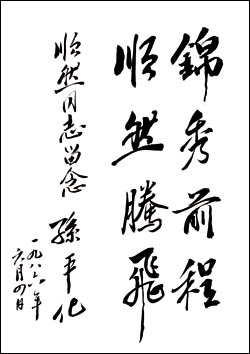 錦秀前程
順然騰飛
順然同志留念
孫平化
一九八六年
六月四日